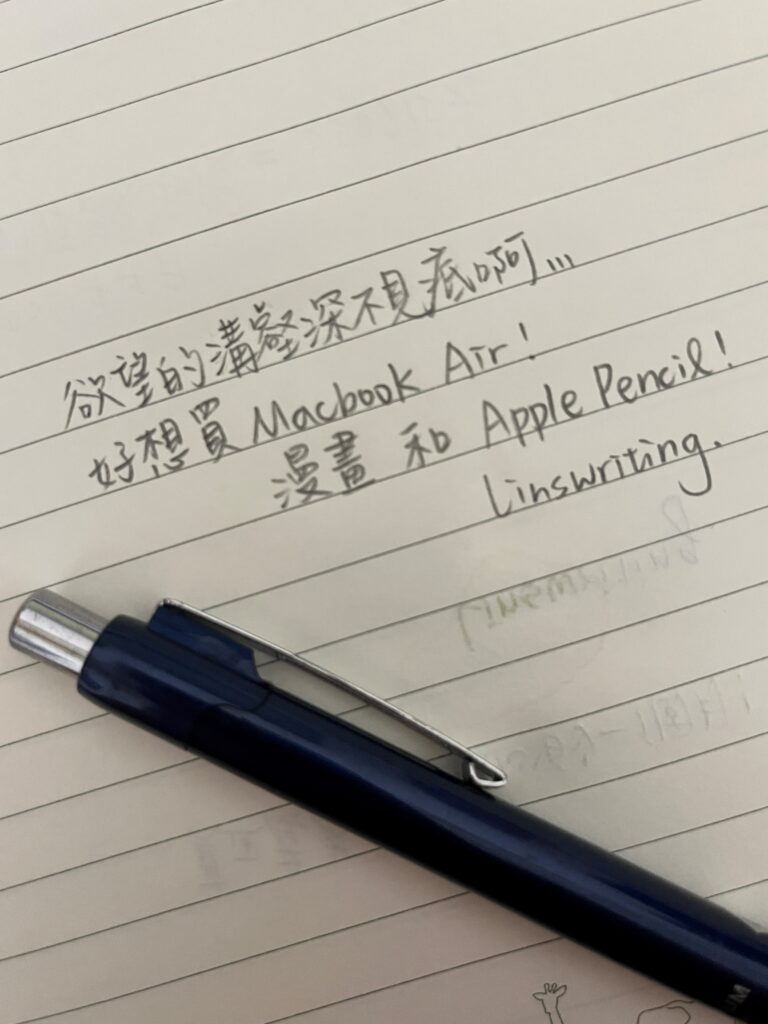 欲望的溝壑深不見底啊...
好想買 Macbook Air!
漫畫 和 Apple Pencil!
linswriting.